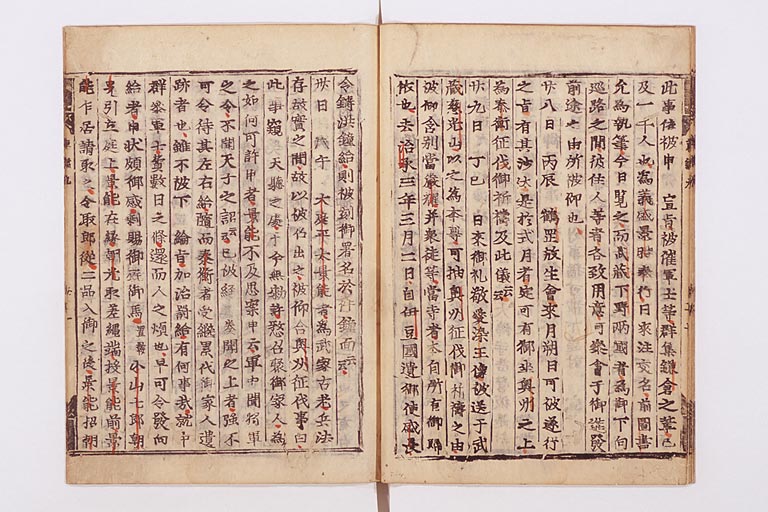 此事依被申 宣旨被催軍士等群集鎌倉之輩已
及一千人也為義盛景時奉行日來注交名前圖書
允為執筆今日覧之而武藏下野兩國者為御下向
巡路之間彼住人等者各致用意可參會于御進發
前途之由所被仰也
廿八日 丙辰 鶴岡放生會來月朔日可被遂行
之旨有其沙汰是於式月者定可有御坐奥州之上
為泰衡征伐御祈禱及此儀云云
廿九日 丁巳 日來御礼敬愛染王像被送于武
藏慈光山以之為本尊可抽奥州征伐御祈禱之由
被御含別當嚴耀并衆徒等當寺者本自所有御歸
依也去治承三年三月二日自伊豆國遣御使盛長
令鑄洪鐘給則被刻御署名於件鐘面云云
卅日 戊午 大庭平太景能者為武家古老兵法
存故實之間故以被召出之被仰合奥州征伐事曰
此事窺 天聽之處于今無勅許憖召聚御家人為
之如何可計申者景能不及思案申云軍中聞將軍
之令不聞天子之詔云云已被經 奏聞之上者強不
可令待其左右給隨而泰衡者受継累代御家人遺
跡者也雖不被下 綸旨加治罰給有何事哉就中
群參軍士費數日之條還而人之煩也早可令發向
給者申状頗御感剰賜御廐御馬置鞍小山七郎朝
光引立庭上景能在縁朝光取差縄端投景能前景
能乍居請取之令取郎從二品入御之後景能招朝